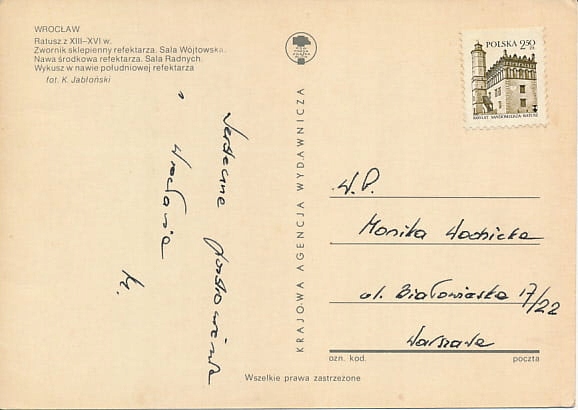 WROCŁAW
Ratusz z XIII–XVI w.
Zwornik sklepienny refektarza. Sala Wójtowska.
Nawa środkowa refektarza. Sala Radnych.
Wykusz w nawie południowej refektarza
fot. K. Jabłoński
Serdeczne pozdrowienia
z Wrocławia
KRAJOWA AGENCJA WYDAWNICZA
POLSKA 2,50
ZŁ
W.P.
Monika Wodnicka
ul. Białowieska 17/22
Warszawa
ozn. kod. poczta
Wszelkie prawa zastrzeżone